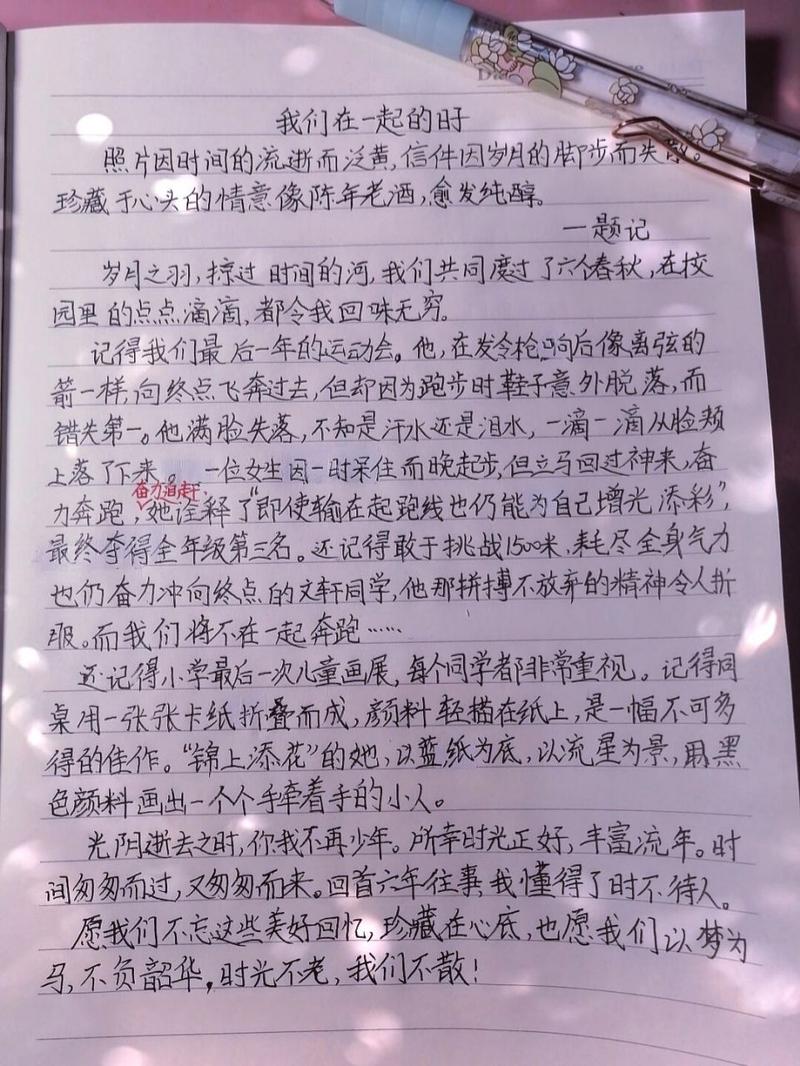 我们在一起的日子
照片因时间的流逝而泛黄,信件因岁月的脚步而失散。
珍藏于心头的情意像陈年老酒,愈发纯醇。
一题记
岁月之羽,掠过时间的河,我们共同度过了六个春秋,在校
园里的点点滴滴,都令我回味无穷。
记得我们最后一年的运动会。他,在发令枪响后像离弦的
箭一样,向终点飞奔过去,但却因为跑步时鞋子意外脱落,而
错失第一。他满脸失落,不知是汗水还是泪水,一滴一滴从脸颊
上落了下来。一位女生因一时呆住而晚起步,但立马回过神来,奋
奋力追赶,
力奔跑,她诠释了“即使输在起跑线也仍能为自己增光添彩”,
最终夺得全年级第三名。还记得敢于挑战1500米,耗尽全身气力
也仍奋力冲向终点的文轩同学,他那拼搏不放弃的精神令人折
服。而我们将不在一起奔跑……
还记得小学最后一次儿童画展,每个同学都非常重视。记得同
桌用一张张卡纸折叠而成,颜料轻描在纸上,是一幅不可多
得的佳作。“锦上添花”的她,以蓝纸为底,以流星为景,用黑
色颜料画出一个个手牵着手的小人。
光阴逝去之时,你我不再少年。所幸时光正好,丰富流年。时
间匆匆而过,又匆匆而来。回首六年往事,我懂得了时不待人。
愿我们不忘这些美好回忆,珍藏在心底,也愿我们以梦为
马,不负韶华,时光不老,我们不散!